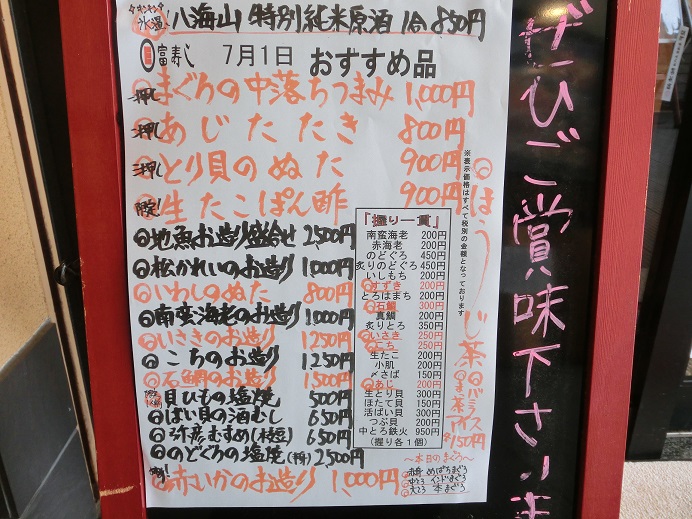 キンキン 氷温 八海山 特別純米原酒 1合 850円
富寿し 7月1日 おすすめ品
一押し まぐろの中落ちつまみ 1,000円
二押し あじたたき 800円
三押し とり貝のぬた 900円
生たこぽん酢 900円
地魚お造り盛合せ 2,500円
松かれいのお造り 1,000円
いわしのぬた 800円
南蛮海老のお造り 1,000円
いさきのお造り 1,250円
こちのお造り 1,250円
石鯛のお造り 1,500円
貝ひもの塩焼 500円
ばい貝の酒むし 650円
弥彦むすめ(枝豆) 650円
のどぐろの塩焼 2,500円
赤いかのお造り 1,000円
「握り一貫」
南蛮海老 200円
赤海老 200円
のどぐろ 450円
炙りのどぐろ 450円
いしもち 200円
すずき 200円
とろはまち 200円
石鯛 300円
真鯛 200円
炙りとろ 350円
いさき 250円
こち 250円
生たこ 200円
小肌 200円
〆さば 150円
あじ 200円
生とり貝 300円
ほたて貝 150円
活ばい貝 300円
つぶ貝 200円
中とろ鉄火 950円
(握り各1個)
※表示価格はすべて税別の金額となっております
ほうじ茶
バニラアイス
各150円
～本日のまぐろ～
赤身 めばちまぐろ
中とろ インドまぐろ
大とろ 本まぐろ
ぜひご賞味下さいま